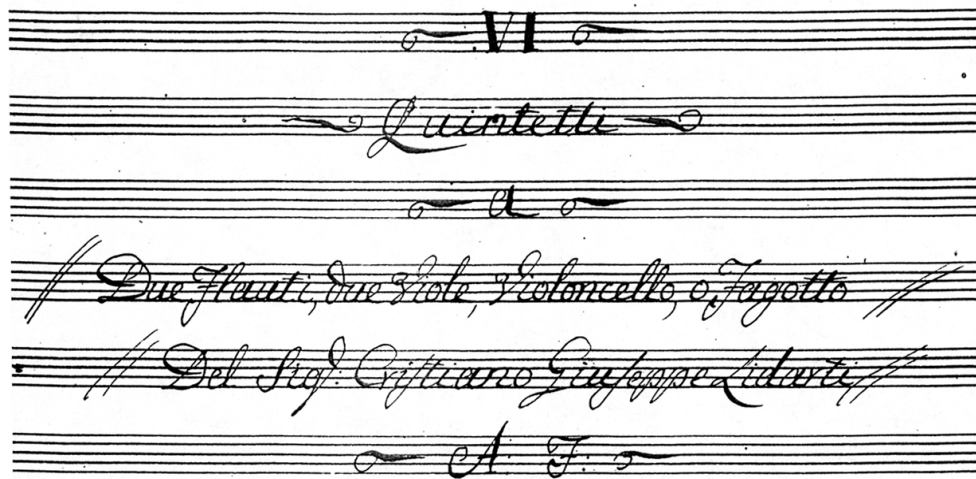 VI
Quintetti
a
Due Flauti, due Viole, Violoncello, o Fagotto
Del Sigʳ: Cristiano Giuseppe Lidarti
A: F: